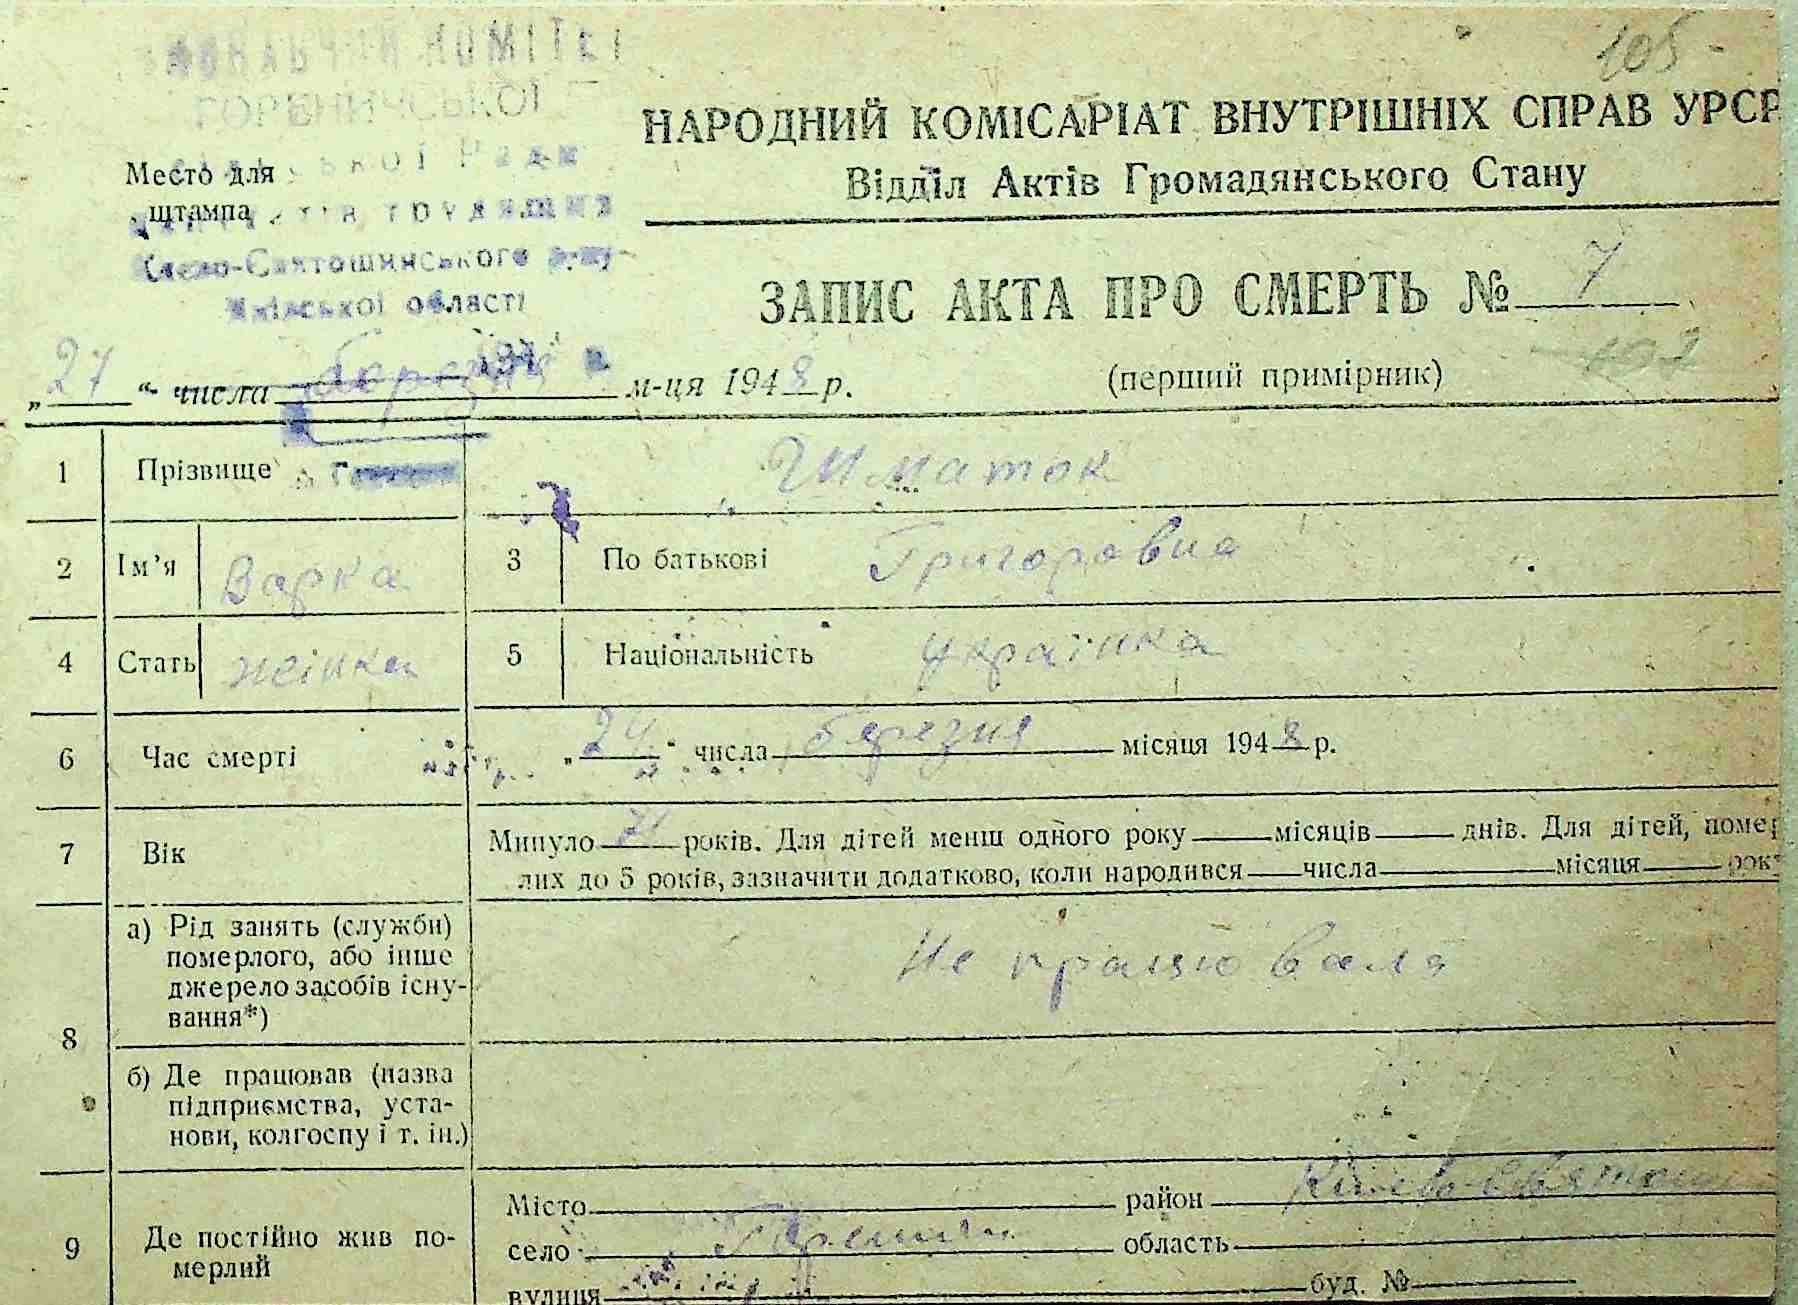 105
ГОРЕНИЧСЬКОЇ
Києво-Святошинського
Київської області
НАРОДНИЙ КОМІСАРІАТ ВНУТРІШНІХ СПРАВ УРСР
Відділ Актів Громадянського Стану
Место для
штампа
ЗАПИС АКТА ПРО СМЕРТЬ № 7
(перший примірник)
„27“ числа березня м-ця 1948 р.
1 Прізвище Шматок
2 Ім’я Варка 3 По батькові Григоровна
4 Стать жінка 5 Національність українка
6 Час смерті „24“ числа березня місяця 1948 р.
7 Вік Минуло 71 років. Для дітей менш одного року місяців днів. Для дітей, помер
лих до 5 років, зазначити додатково, коли народився числа місяця рок
8 а) Рід занять (служби)
померлого, або інше
джерело засобів існу-
вання*)
Не працювала
б) Де працював (назва
підприємства, уста-
нови, колгоспу і т. ін.)
9 Де постійно жив по-
мерлий
Місто район Києво-Святошин
село Гореничи область
вулиця буд. №